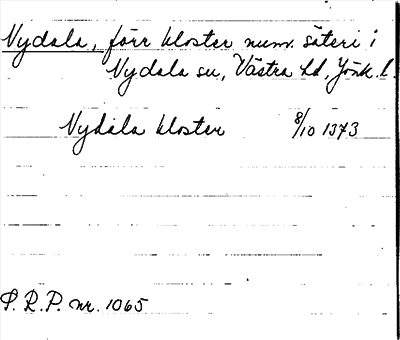 Nydala, förr kloster numv. säteri i
Nydala sn, Västra hd, Jönk. l.
Nydala kloster 8/10 1373
P. R. P. nr. 1065